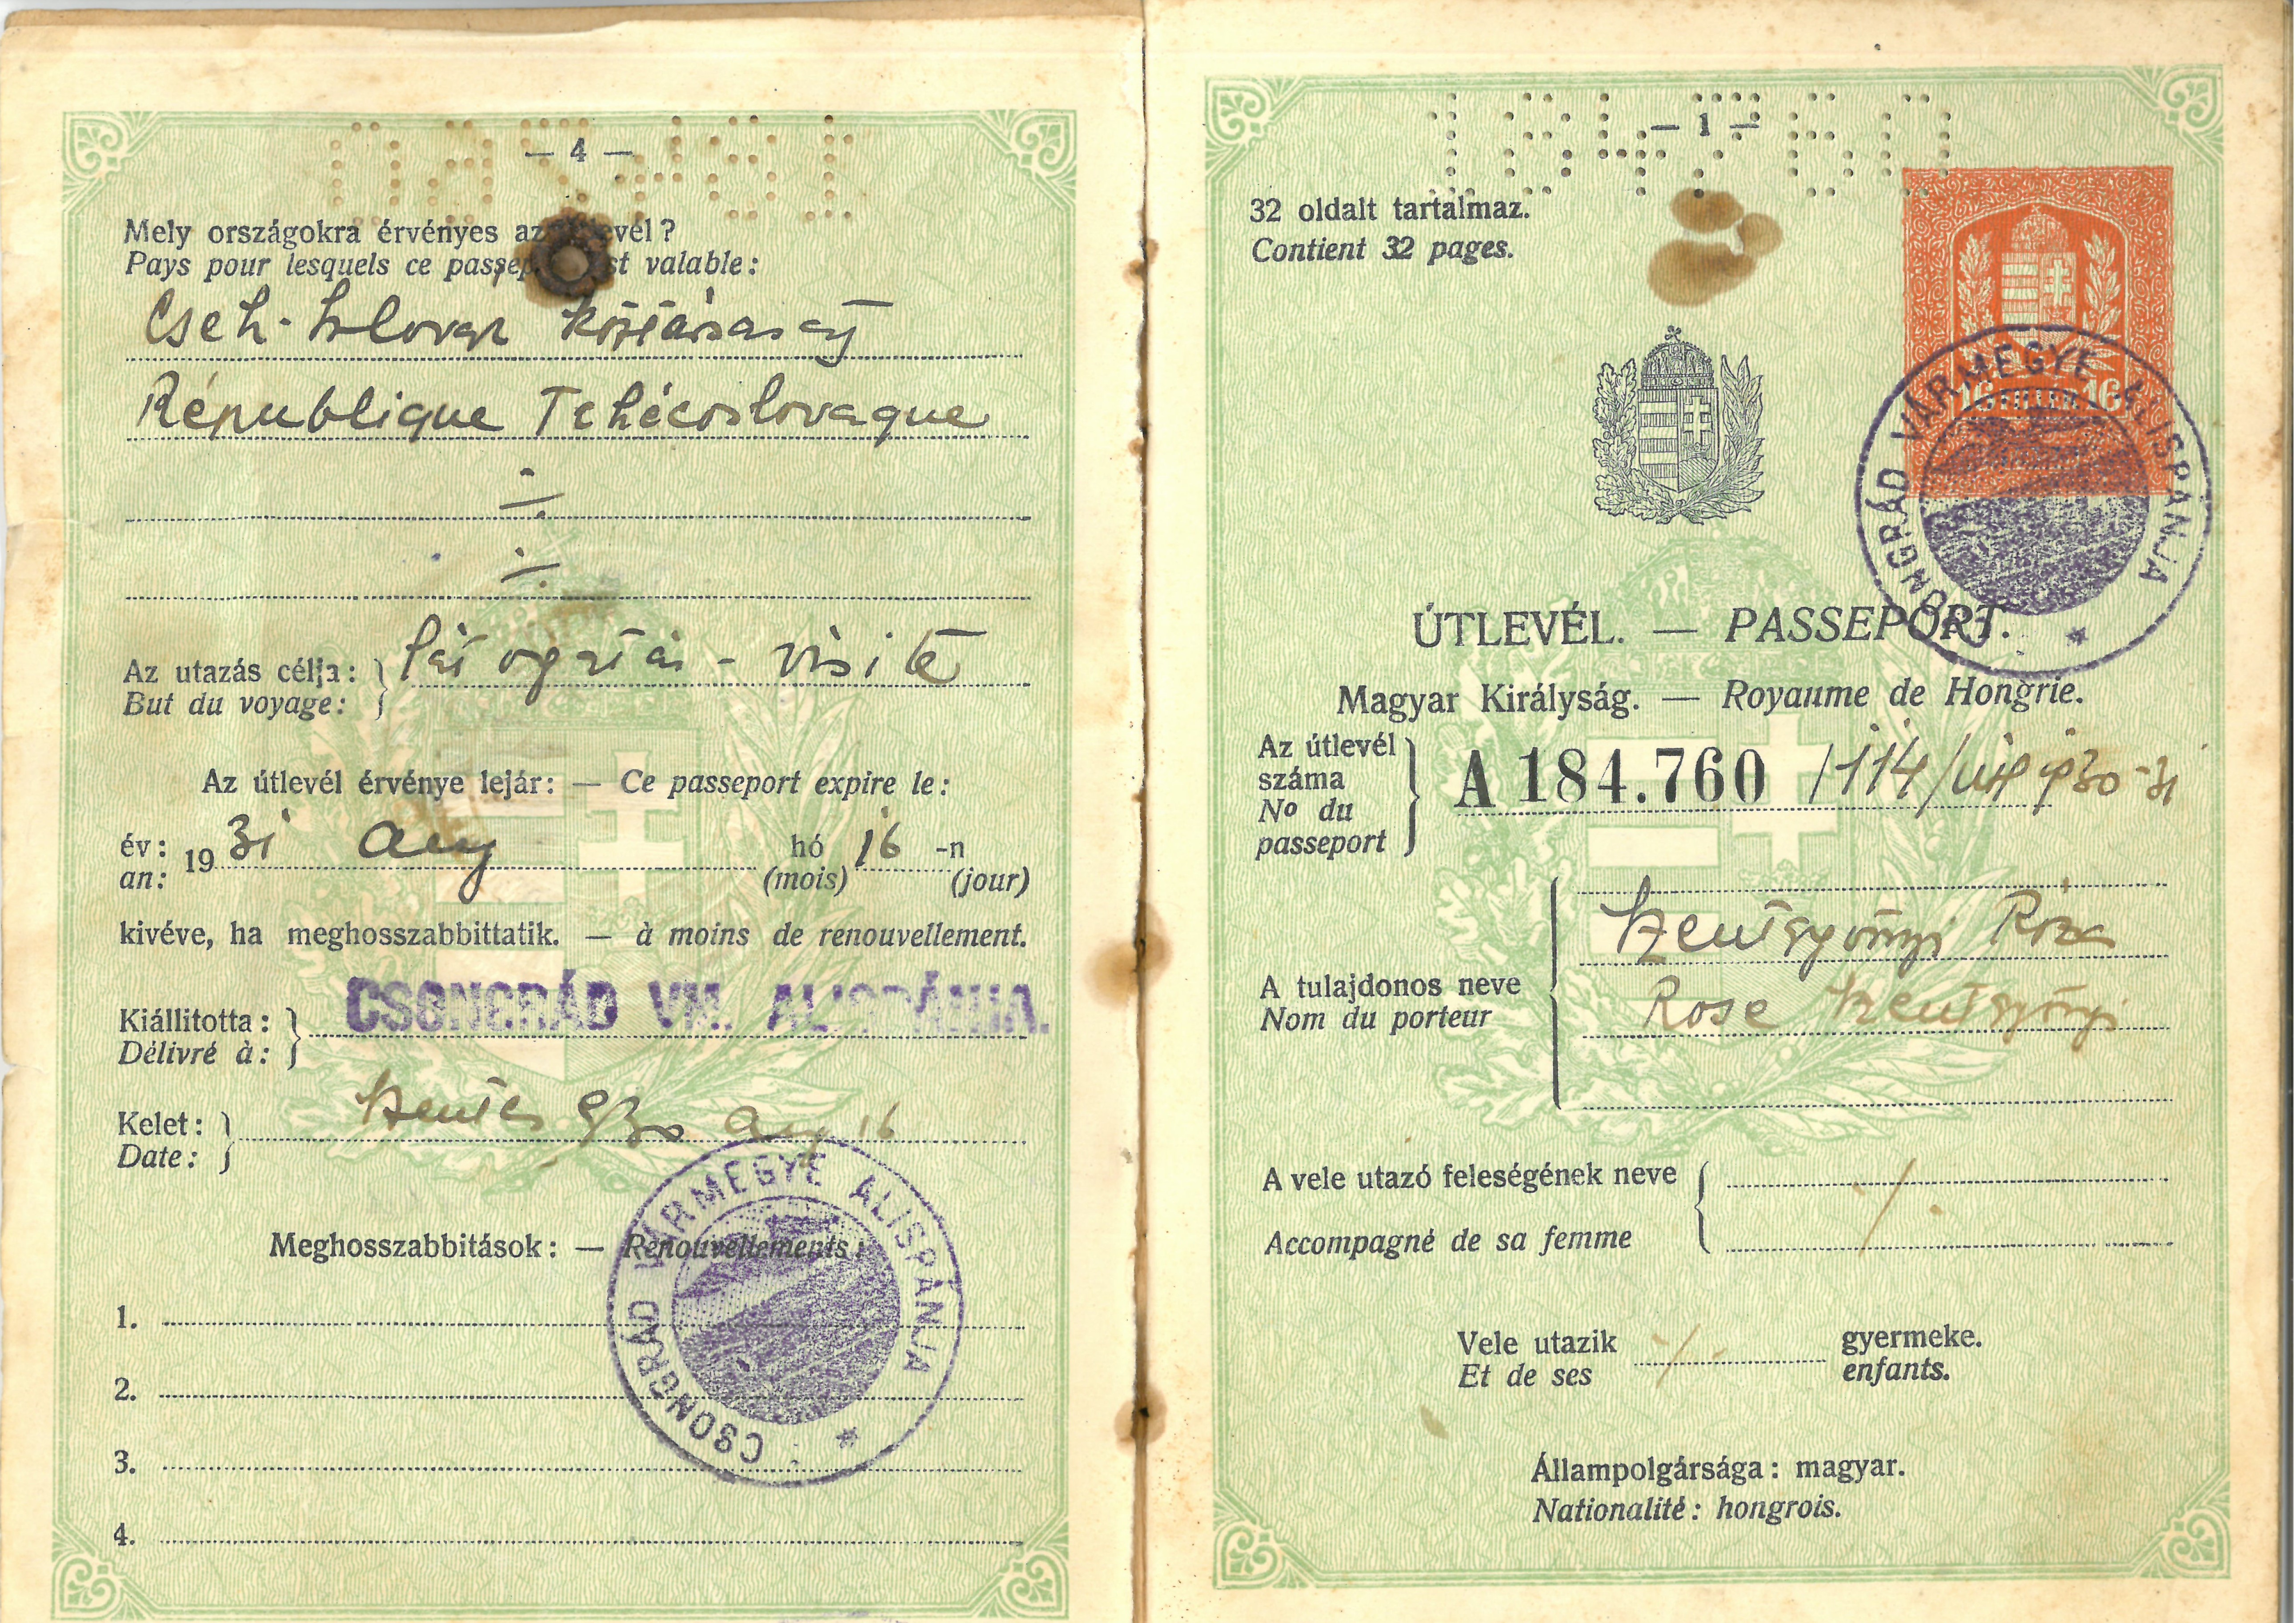 — 4 —
Mely országokra érvényes az vél?
Pays pour lesquels ce passep st valable:
Cseh-szlovak köztársaság
République Tchécoslovaque
Az utazás célja: látogatás - visite
But du voyage:
Az útlevél érvénye lejár: — Ce passeport expire le:
év: 1931 aug hó 16 -n
an: (mois) (jour)
kivéve, ha meghosszabbittatik. — à moins de renouvellement.
Kiállitotta: CSONGRÁD VM. ALISPÁNJA.
Délivré à:
Kelet: Szentes 930 aug 16
Date:
CSONGRÁD VÁRMEGYE ALISPÁNJA
Meghosszabbitások: — Renouvellements:
1.
2.
3.
4.
184760
— 1 —
32 oldalt tartalmaz.
Contient 32 pages.
16 16
CSONGRÁD VÁRMEGYE ALISPÁNJA
ÚTLEVÉL. — PASSEPORT.
Magyar Királyság. — Royaume de Hongrie.
Az útlevél
száma
No du
passeport
A 184.760 /114/ 930-31
Szentgyörgyi Róza
A tulajdonos neve
Nom du porteur
Rose Szentgyörgyi
A vele utazó feleségének neve
Accompagné de sa femme
Vele utazik gyermeke.
Et de ses enfants.
Állampolgársága: magyar.
Nationalité: hongrois.